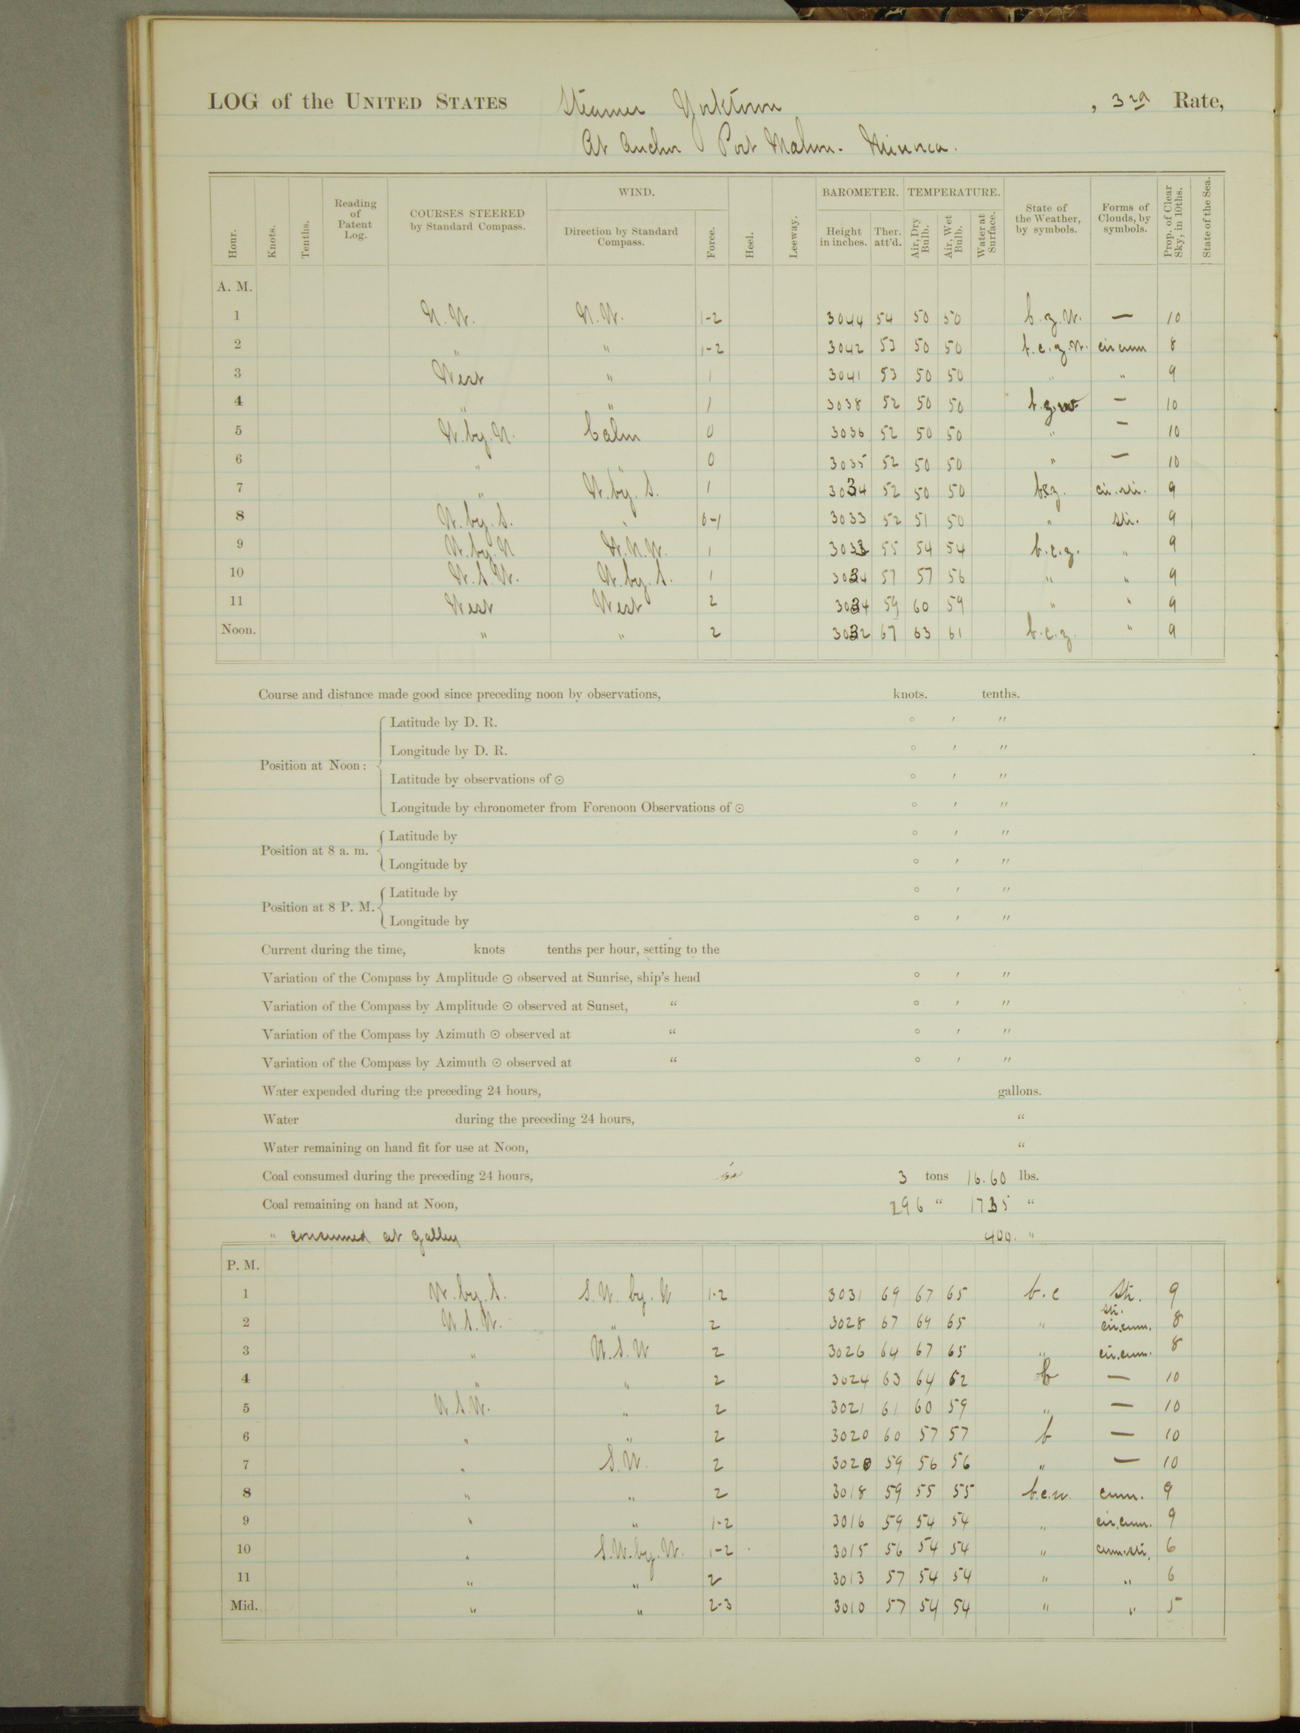 LOG of the UNITED STATES Steamer Yorktown , 3rd Rate,
At Anchor Port Mahon. Minorca.
Hour. Knots. Tenths. Reading of Patent Log. COURSES STEERED by Standard Compass. WIND. Direction by Standard Compass. Force. Heel. Leeway. BAROMETER. Height in inches. Ther. att'd. TEMPERATURE. Air, Dry Bulb. Air, Wet Bulb. Water at Surface. State of the Weather, by symbols. Forms of Clouds, by symbols. Prop. of Clear Sky, in 10ths. State of the Sea.
A. M.
1 N.W. N.W. 1-2 3044 54 50 50 b.z.w. — 10
2 " " 1-2 3042 53 50 50 b.c.z.w. cir cum 8
3 West " 1 3041 53 50 50 " " 9
4 " " 1 3038 52 50 50 b.z.w — 10
5 W.by.N. Calm 0 3036 52 50 50 " — 10
6 " " 0 3035 52 50 50 " — 10
7 " W.by.S. 1 3034 52 50 50 bcz. cir.str. 9
8 W.by.S. " 0-1 3033 52 51 50 " Str. 9
9 W.by.N W.N.W. 1 3033 55 54 54 b.c.z. " 9
10 W.S.W. W.by.S. 1 3034 57 57 56 " " 9
11 West West 2 3034 59 60 59 " " 9
Noon. " " 2 3032 67 63 61 b.c.z. " 9
Course and distance made good since preceding noon by observations, knots. tenths.
Position at Noon: Latitude by D. R. ° ′ ″
Longitude by D. R. ° ′ ″
Latitude by observations of ☉ ° ′ ″
Longitude by chronometer from Forenoon Observations of ☉ ° ′ ″
Position at 8 a. m. Latitude by ° ′ ″
Longitude by ° ′ ″
Position at 8 P. M. Latitude by ° ′ ″
Longitude by ° ′ ″
Current during the time, knots tenths per hour, setting to the
Variation of the Compass by Amplitude ☉ observed at Sunrise, ship's head ° ′ ″
Variation of the Compass by Amplitude ☉ observed at Sunset, " ° ′ ″
Variation of the Compass by Azimuth ☉ observed at " ° ′ ″
Variation of the Compass by Azimuth ☉ observed at " ° ′ ″
Water expended during the preceding 24 hours, gallons.
Water during the preceding 24 hours, "
Water remaining on hand fit for use at Noon, "
Coal consumed during the preceding 24 hours, 3 tons 16.60 lbs.
Coal remaining on hand at Noon, 296 " 1735 "
" consumed at galley 400. "
P. M.
1 W.by.S. S.W. by. W 1-2 3031 69 67 65 b.c Str. 9
2 W.S.W. " 2 3028 67 69 65 " str. cir.cum. 8
3 " W.S.W 2 3026 64 67 65 " cir.cum. 8
4 " " 2 3024 63 64 62 b — 10
5 W.S.W. " 2 3021 61 60 59 " — 10
6 " " 2 3020 60 57 57 b — 10
7 " S.W. 2 3020 59 56 56 " — 10
8 " " 2 3018 59 55 55 b.c.w. cum. 9
9 " " 1-2 3016 59 54 54 " cir.cum. 9
10 " S.W.by.W. 1-2 3015 56 54 54 " cum.str. 6
11 " " 2 3013 57 54 54 " " 6
Mid. " " 2-3 3010 57 54 54 " " 5